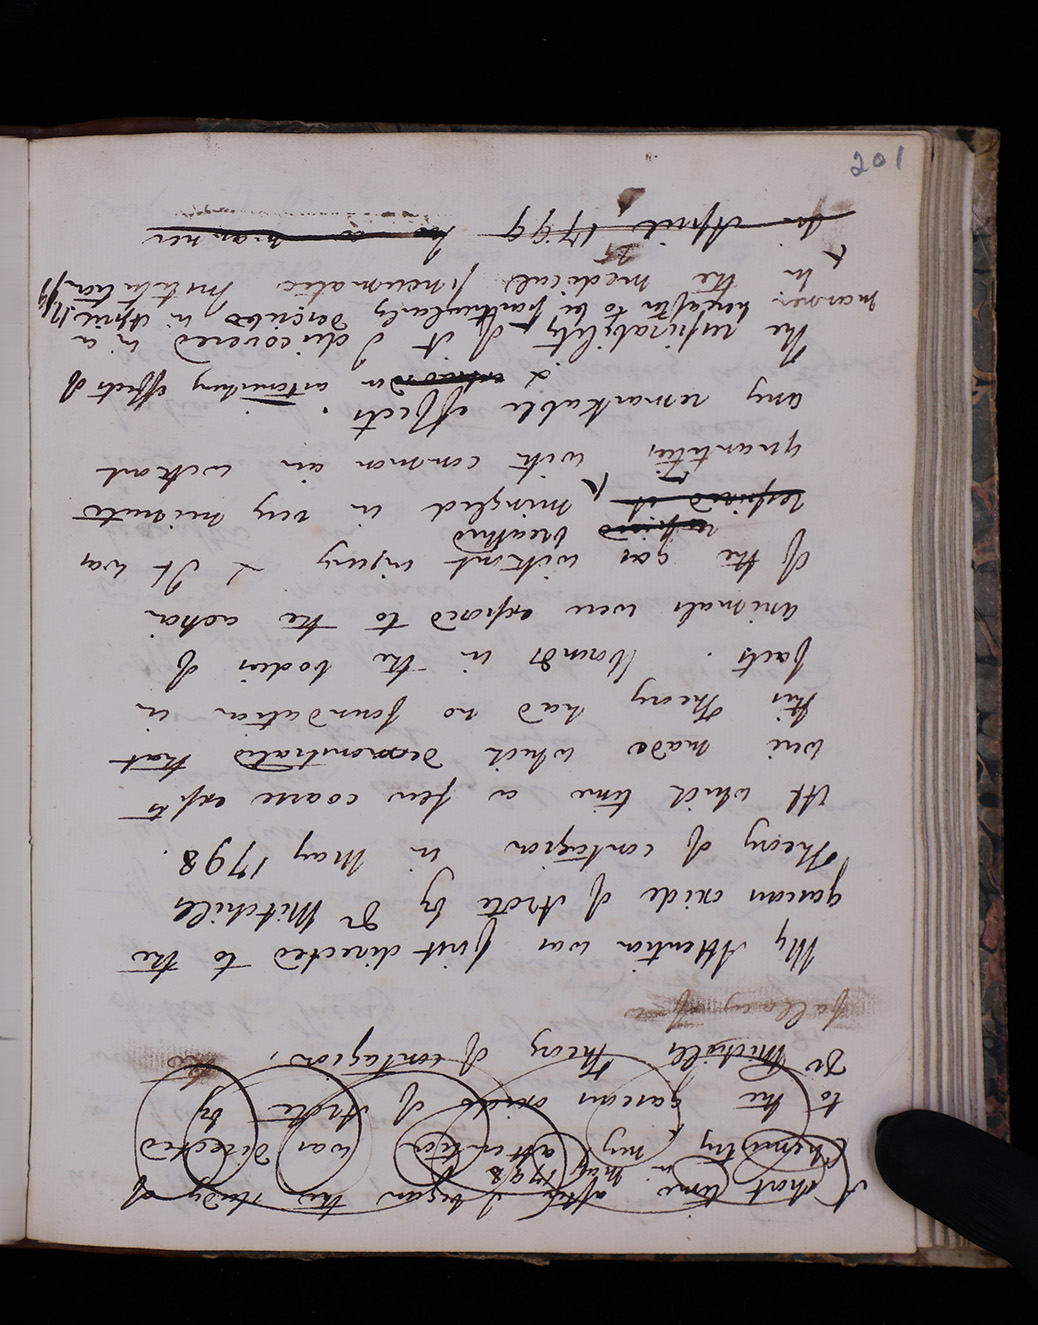 201
A short time after I began the study of
Chemistry in May 1798 my attention was directed
to the gaseous oxide of Azote by
Dr Mitchills Theory of contagion,
fallacy of
My Attention was first directed to the
gaseous oxide of Azote by Dr Mitchills
Theory of contagion in May 1798.
At which time a few coarse expts
were made which demonstrated that
this Theory had no foundation in
facts. Wounds in the bodies of
animals were exposed to the action
of the gas without injury & It was
respired breathed
respired it mingled in very minute
quantities with common air without
any remarkable effects.
& astonishing effects of
The respirability of it I discovered in a
manner hereafter to be particularly described in April 1799
In the medical pneumatic Institution
In April 1799 manner